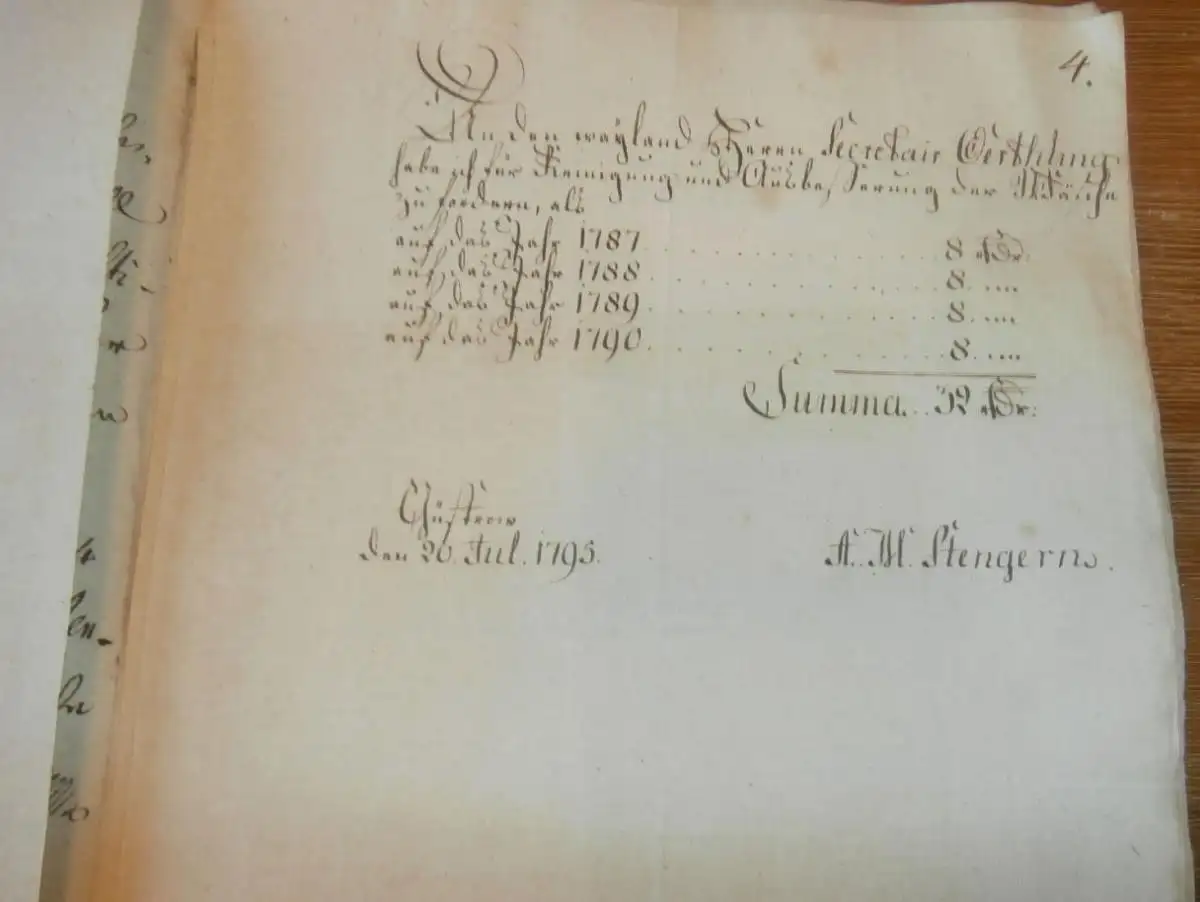 4.
An den wayland Herren Secretair Oerthling
habe ich für Reinigung und Ausbesserung der Wäsche
zu fordern, als
auf das Jahr 1787 . . . . . . . . . . 8 Rthlr.
auf das Jahr 1788 . . . . . . . . . . 8. ....
auf das Jahr 1789 . . . . . . . . . . 8. ....
auf das Jahr 1790 . . . . . . . . . . 8. ....
Summa. . . 32 Rthlr.
Güstrow
den 20. Jul. 1795.
A. M. Stengern.